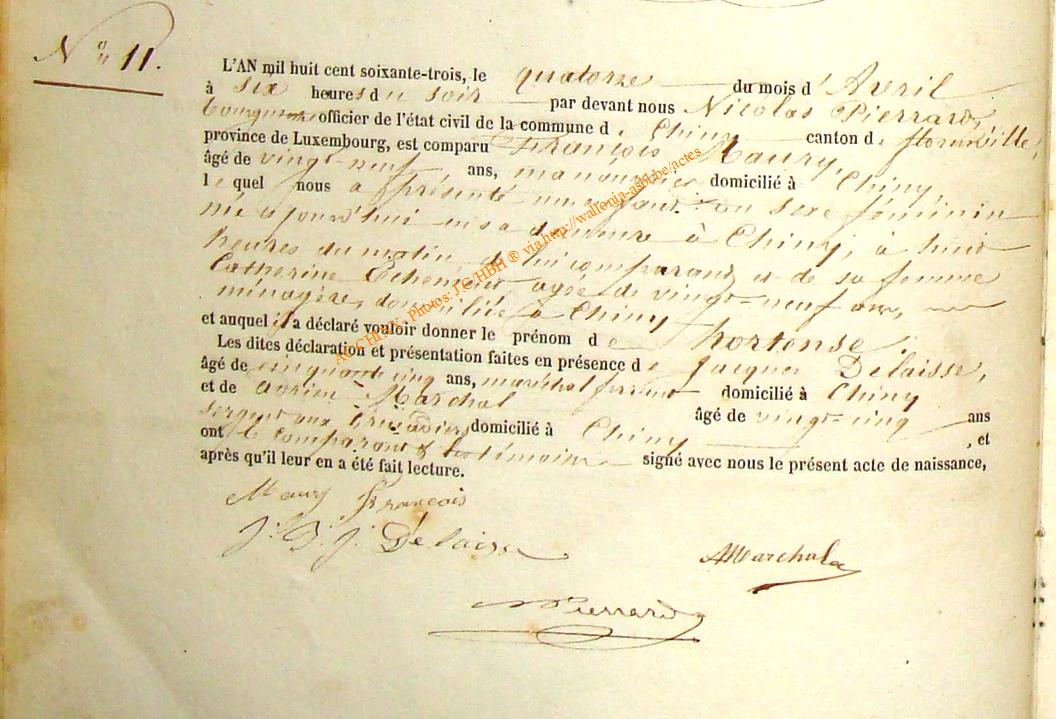 No 11.
L'AN mil huit cent soixante-trois, le quatorze du mois d'Avril
à six heures du soir par devant nous Nicolas Pierrard,
bourgmestre officier de l'état civil de la commune de Chiny canton de florenville,
province de Luxembourg, est comparu François Maury,
âgé de vingt-neuf ans, manouvrier domicilié à Chiny,
lequel nous a présenté un enfant du sexe féminin
née aujourd'hui en sa demeure à Chiny, à huit
heures du matin, de lui comparant et de sa femme
Catherine âgée de vingt-neuf ans,
ménagère, domiciliée à Chiny
et auquel il a déclaré vouloir donner le prénom de hortense.
Les dites déclaration et présentation faites en présence de Jacques Delaisse,
âgé de cinquante cinq ans, maréchal ferrant domicilié à Chiny
et de adrien Marchal âgé de vingt-cinq ans
sergent aux domicilié à Chiny, et
ont le comparant & les témoins signé avec nous le présent acte de naissance,
après qu'il leur en a été fait lecture.
Maury François
J. J. J. Delaisse
AMarchal
Pierrard
AC CHINY. Photos: JC/HBH ® via http://wallonia-asbl.be/actes